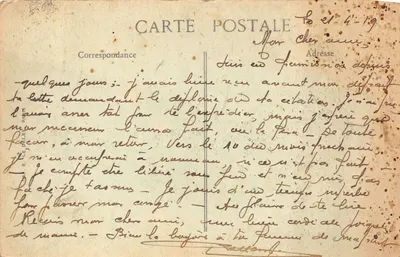 CARTE POSTALE
le 21-4-19
Correspondance
Adresse
Mon cher ami,
Suis en permission depuis
quelques jours; j'avais bien reçu avant mon départ
ta lettre demandant le de la citation, je n'ai pu
l'avoir assez tôt pour te l'expédier, mais j'espère que
mon l'aura fait, ou le fera. De toute
façon, à mon retour, vers le 10 du mois prochain,
je m'en occuperai à nouveau, si ce n'est pas fait.
Je compte être libéré sous peu et n'en suis pas
fâché, je t'assure. Je jouis d'un temps superbe
pour passer mon congé. Au plaisir de te lire.
Reçois mon cher ami, une bien cordiale poignée
de main. Bien le bonjour à ta femme de ma part